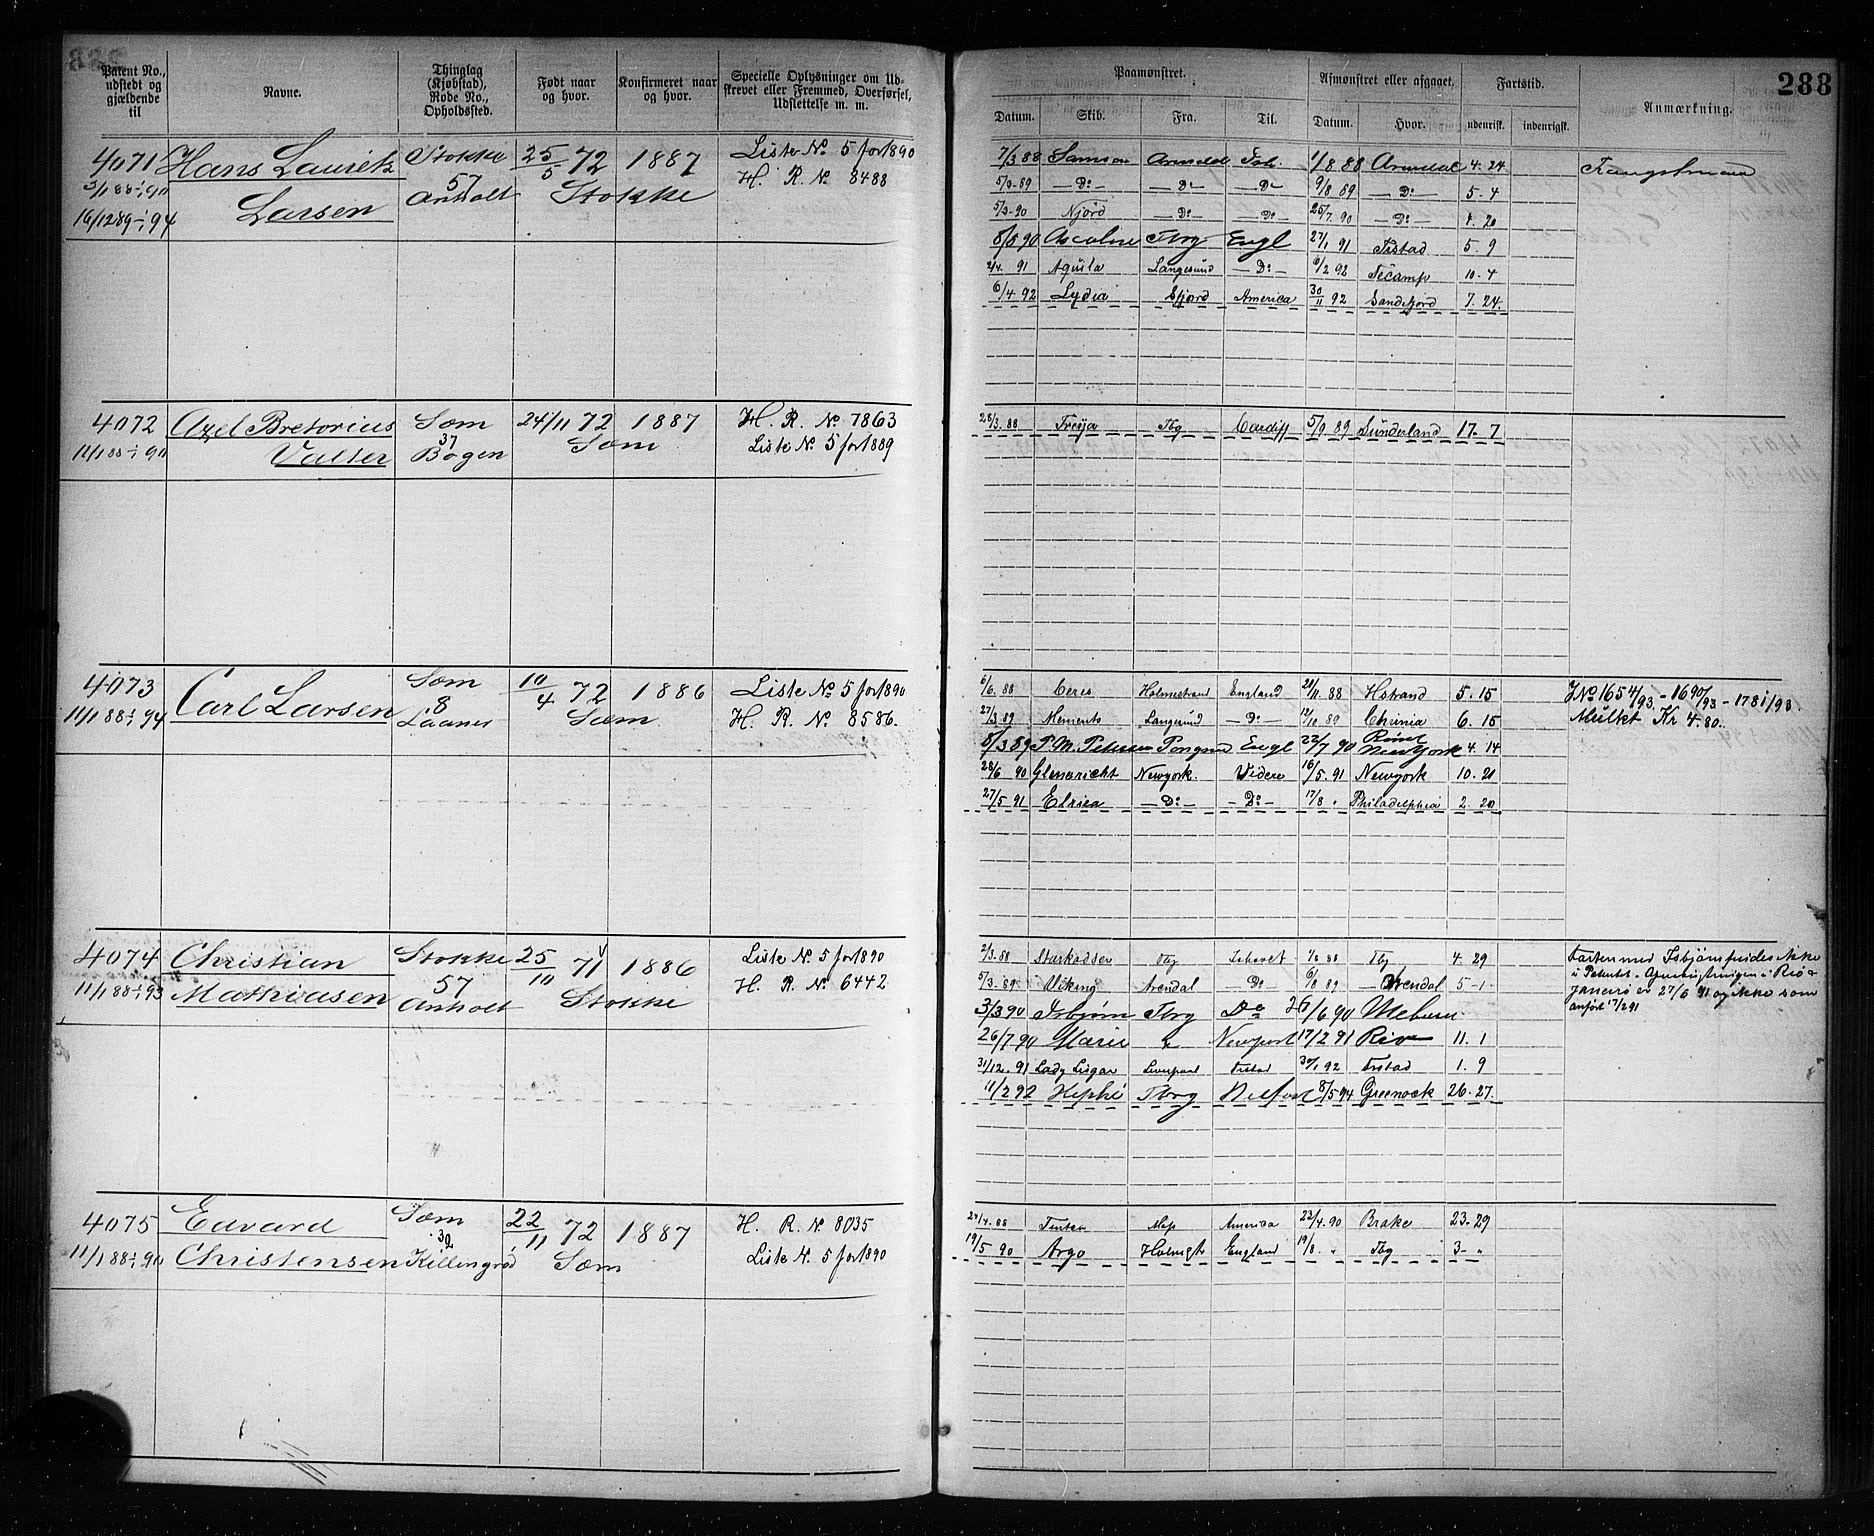 288
Patent No., udstedt og gjældende til
Navne.
Thinglag (Kjøbstad), Rode No., Opholdssted.
Født naar og hvor.
Konfirmeret naar og hvor.
Specielle Oplysninger om Udskrevet eller Fremmed, Overførsel, Udslettelse m. m.
Paamønstret.
Afmønstret eller afgaaet.
Fartstid.
Anmærkning.
Datum. Skib. Fra. Til. Datum. Hvor. udenrisk. indenrigsk.
4071 Hans Lauritz Stokke 25/5 72 1887 Liste No 5 for 1890
3/1 88-1/1 90 57 Stokke H. R. No 8488
16/12 89-1/1 94 Larsen Anholt
7/3 88 Samson Arendal 1/8 88 Arendal 4. 24 Fangstmand
5/3-89 —Do— —Do— —Do— 9/8 89 —Do— 5. 4
5/3-90 Njörd —Do— —Do— 25/7. 90 —Do— 4. 20
Tbrg Engl 27/1 91 Frstad 5. 9
2/4. 91 Aquila Langesund —Do— 6/2 92 Fécamp 10. 4
6/4 92 Lydia Efjord America 30/11 92 Sandefjord 7. 24.
4072 Axel Bretorius Sæm 24/11 72 1887 H. R. No 7863
11/1 88-1/1 90 Valter 37 Bogen Sæm Liste No 5 for 1889
28/3. 88 Freÿa Tbg Cardiff 5/9 89 Sunderland 17. 7
4073 Carl Larsen Sæm 10/4 72 1886 Liste No 5 for 1890
11/1 88-1/1 94 8 Sæm H. R. No 8586.
6/6. 88 Ceres Holmestrand England 28/11. 88 Hstrand 5. 15 JNo 1654/93. - 1690/93 - 1781/93.
27/3 89 Memento Langsund —Do— 12/10 89 Chrinia 6. 15 Mulkt Kr 4.80.
8/3 89 P. M. Petersen Engl 22/7 90 New York 4. 14
28/6 90 Newyork. Videre 16/5. 91 Newyork 10. 21
27/5 91 Elrica —Do— —Do— 17/8 " Philadelphia 2. 20
4074 Christian Stokke 25/10 71 1886 Liste No 5 for 1890
11/1 88-1/1 93 Mathiasen 57 Anholt Stokke H. R. No 6442
2/3. 88 Starkodder Tbg Ishavet 1/8 88 Tbg 4. 29 Farten med Isbjørn findes ikke
5/3. 89 Viking Arendal —Do— 6/8 89 Arendal 5-1
3/3 90 Isbjörn Tbrg Do 26/6 90
26/7 90 Marie " Newport 17/2 91 Rio 11. 1
31/12. 91 Liverpool Frstad 30/1 92 Frstad 1. 9
11/2 92 Tbrg 8/5 94 Greenock 26. 27.
i Patentet. Rio
Janeiro er 27/6 91 og ikke som
anført 17/2 91
4075 Edvard Sæm 22/11 72 1887 H. R. No 8035
11/1 88-1/1 90 Christensen 32 Killingrød Sæm Liste No 5 for 1890
24/4. 88 America 23/4. 90 Brake 23. 29
19/5 90 Argo England 19/8. " Tbg 3- "